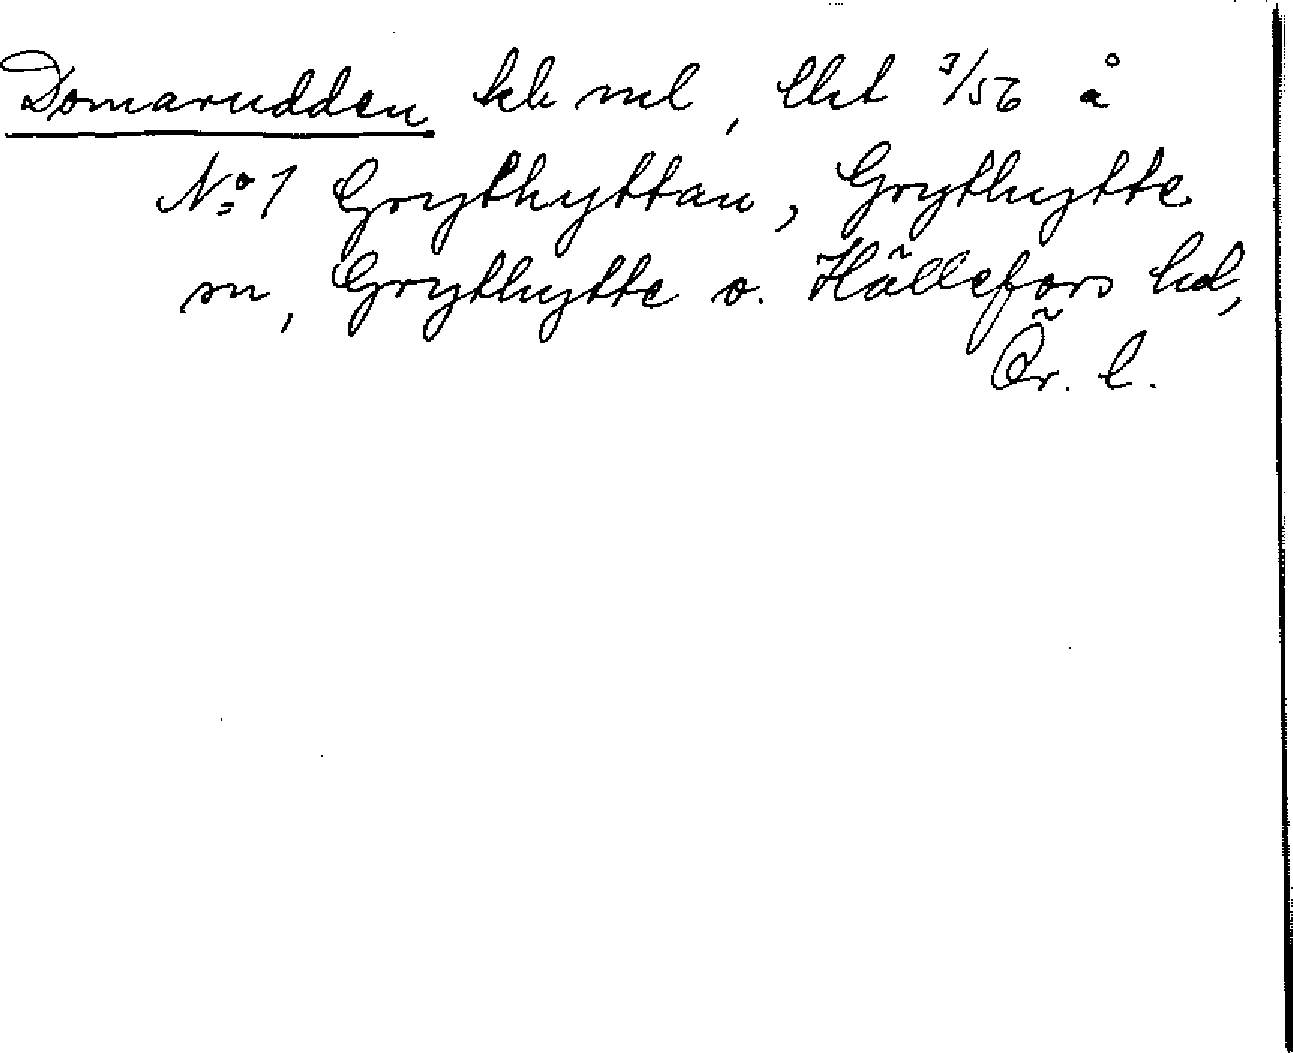 Domarudden kb ml, lht 3/56 å
No 1 Grythyttan, Grythytte
sn, Grythytte o. Hällefors hd,
Ör. l.